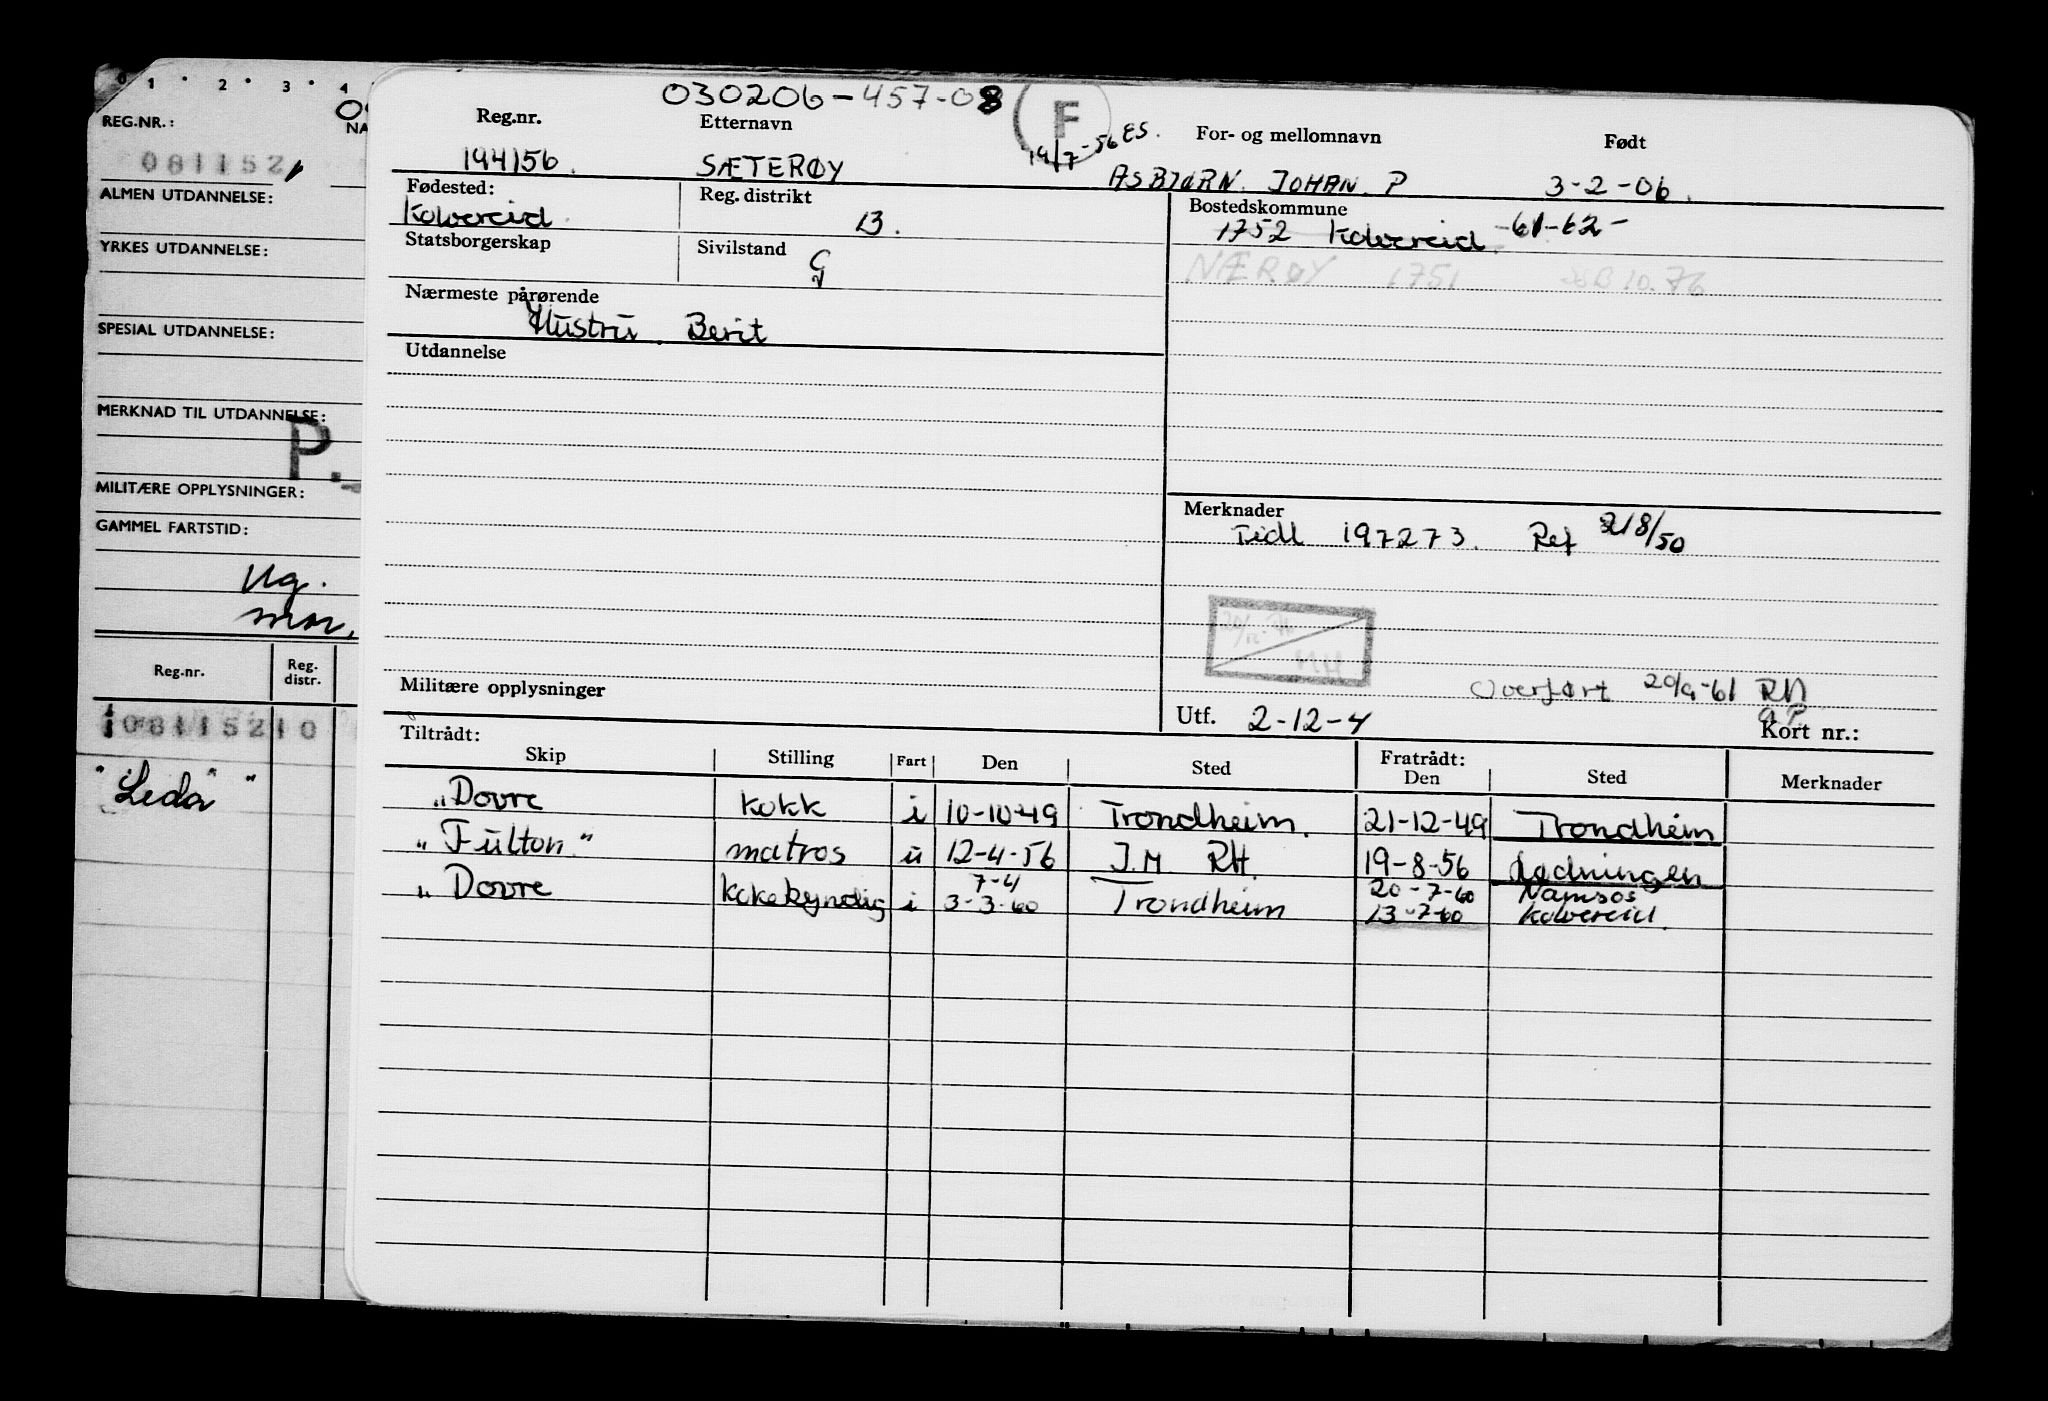 0 1 2 3 4
REG.NR.:
081152
ALMEN UTDANNELSE:
YRKES UTDANNELSE:
SPESIAL UTDANNELSE:
MERKNAD TIL UTDANNELSE:
P.
MILITÆRE OPPLYSNINGER:
GAMMEL FARTSTID:
Ug.
Reg.nr. Reg. distr.
"Leda" "
030206-457-08
F
Reg.nr. Etternavn 14/7-56 ES. For- og mellomnavn Født
194156. SÆTERØY ASBJØRN. JOHAN. P 3-2-06.
Fødested: Reg. distrikt Bostedskommune
Kolvereid B. 1752 Kolvereid. -61-62-
Statsborgerskap Sivilstand G
NÆRØY 1751 10.76
Nærmeste pårørende
Hustru. Berit
Utdannelse
Merknader
Tidl 197273. Ref 218/50
Overført 20/9-61 RN
Militære opplysninger
Utf. 2-12-4 Kort nr.:
Tiltrådt: Fratrådt:
Skip Stilling Fart Den Sted Den Sted Merknader
"Dovre kokk i 10-10-49 Trondheim. 21-12-49 Trondheim
"Fulton" matros u 12-4-56 J.M. RH. 19-8-56 Lødningen
7-4 20-7-60 Namsos
"Dovre kokekyndig i 3-3-60 Trondheim 13-7-60 Kolvereid.